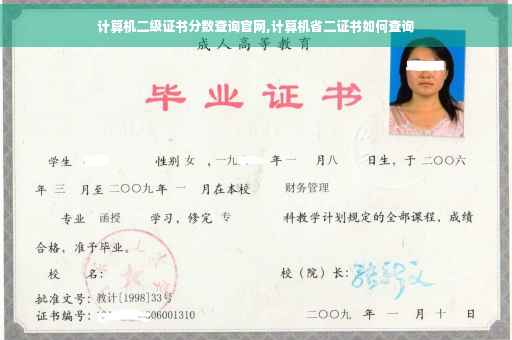 计算机二级证书分数查询官网,计算机省二证书如何查询
成人高等教育
毕业证书
学生 性别 女 , 一九 年 一 月 八 日生, 于 二〇〇六
年 三 月至 二〇〇九 年 一 月在本校 财务管理
专业 函授 学习, 修完 专 科教学计划规定的全部课程, 成绩
合格, 准予毕业。
校 名: 校(院)长:
批准文号: 教计[1998]33号
证书编号: 06001310 二〇〇九 年 一 月 十 日